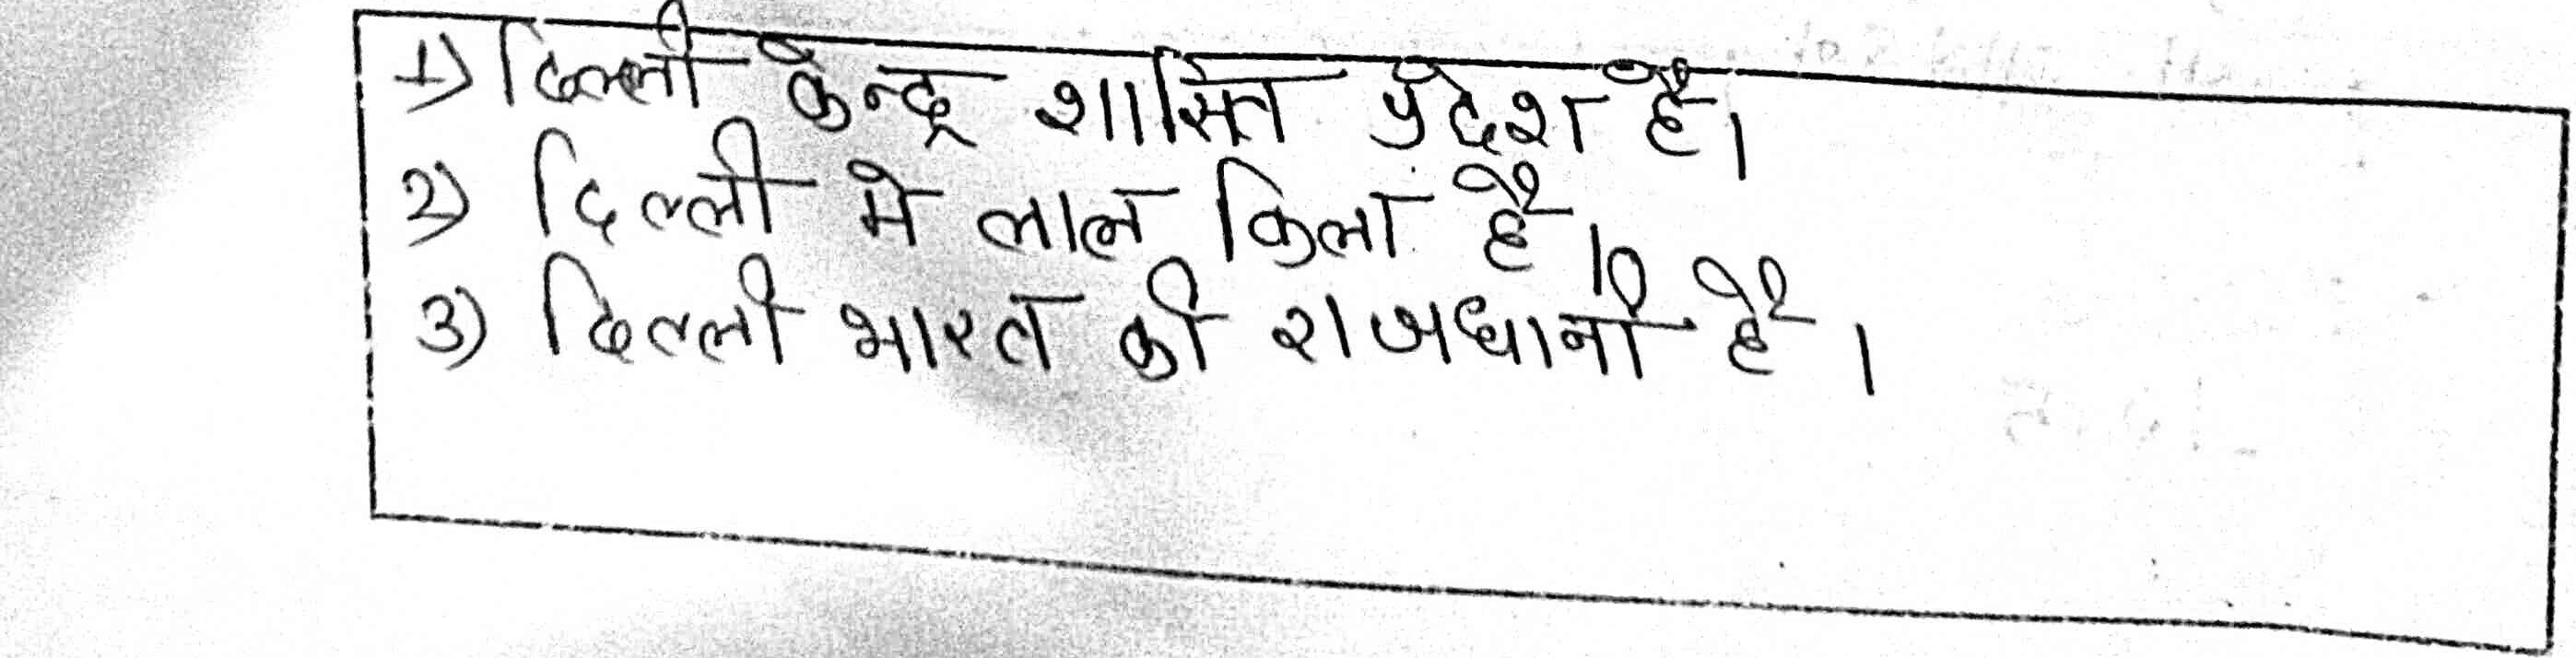 1) दिल्ली केन्द्र शासित प्रदेश है।
2) दिल्ली मे लाल किला है।
3) दिल्ली भारत की राजधानी है।